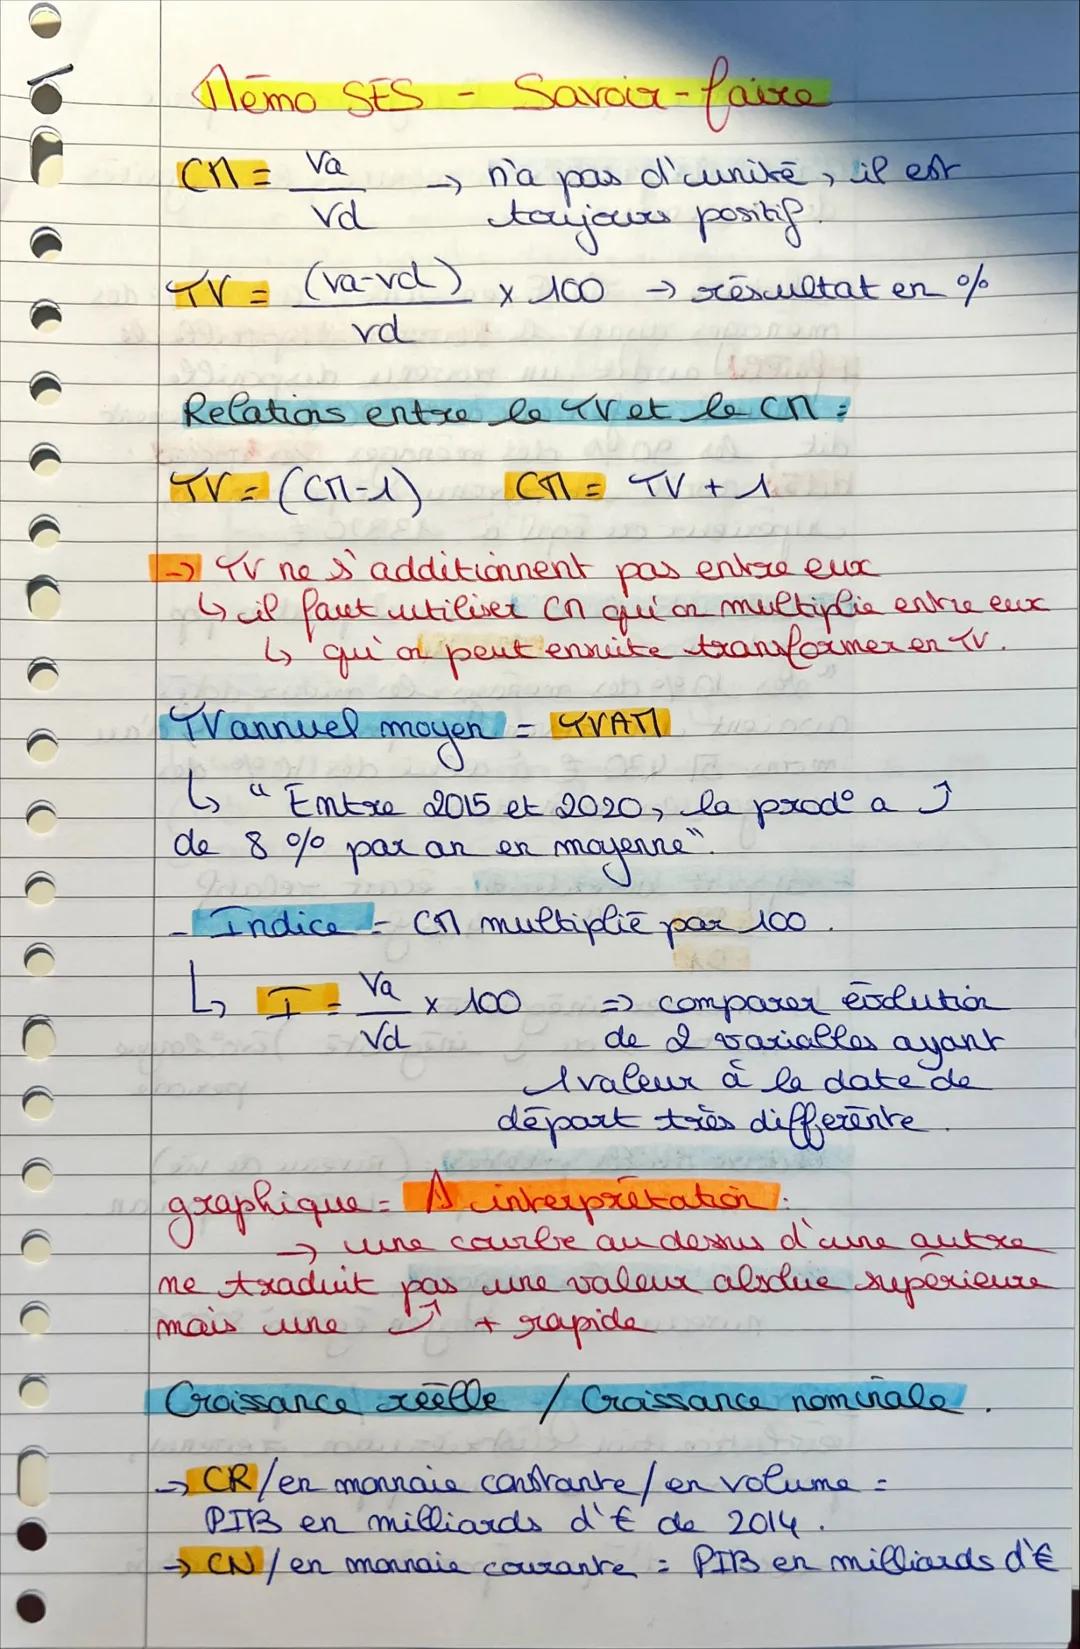 Mémo SES - Savoir-faire
CM = Va / Vd → n'a pas d'unité, il est
toujours positif.
TV = (va-vd) / vd x 100 → résultat en %
Relations entre le TV et le CM :
TV = (CM-1) CM = TV + 1
→ TV ne s'additionnent pas entre eux
↳ il faut utiliser CM qu'on multiplie entre eux
↳ qu'on peut ensuite transformer en TV.
TV annuel moyen = TVAM
↳ "Entre 2015 et 2020, la prod° a ⤴
de 8 % par an en moyenne".
- Indice = CM multiplié par 100.
↳ I = Va / Vd x 100 => comparer évolution
de 2 variables ayant
1 valeur à la date de
départ très différente.
graphique = ⚠ interprétation :
→ une courbe au dessus d'une autre
ne traduit pas une valeur absolue supérieure
mais une ⤴ + rapide
Croissance réelle / Croissance nominale.
→ CR/en monnaie constante/en volume =
PIB en milliards d'€ de 2014.
→ CN/en monnaie courante = PIB en milliards d'€